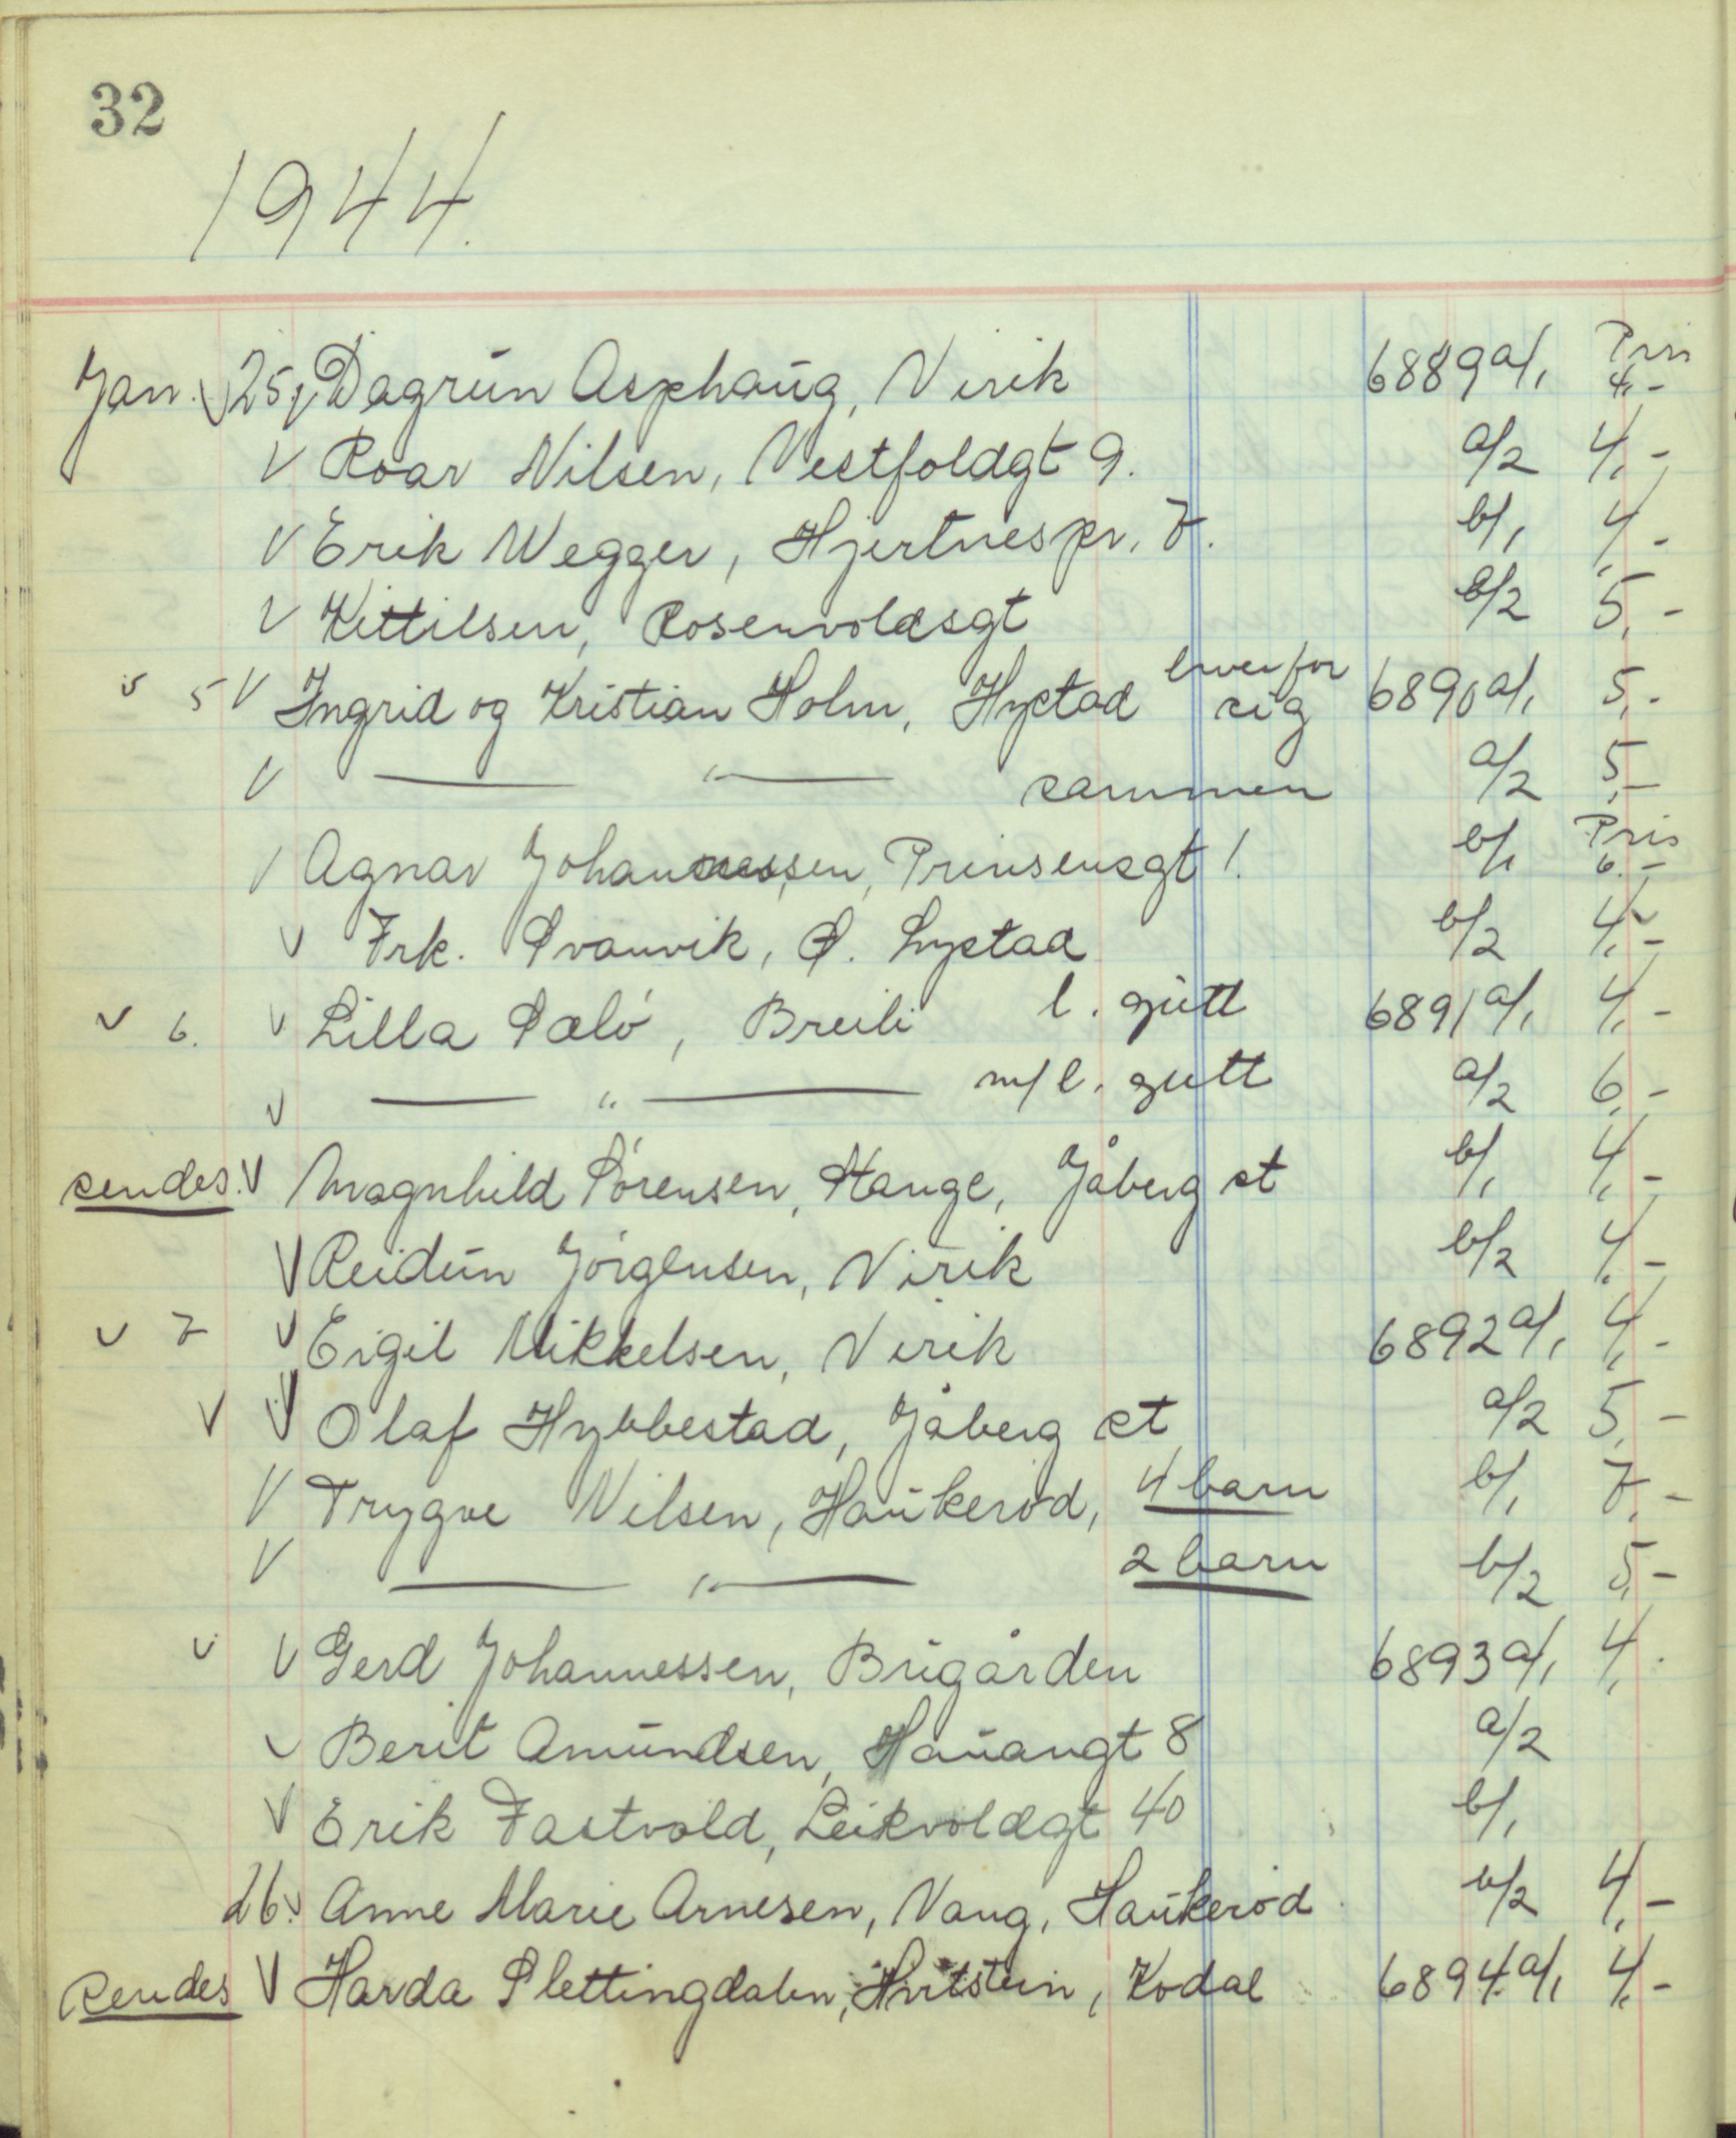 32
1944.
Jan. √ 25. √ Dagrun Asphaug, Virik 6889 a/1 Pris 4,-
√ Roar Nilsen, Vestfoldgt 9. a/2 4,-
√ Erik Wegger, Hjertnespr. 7. b/1 4,-
√ Kittilsen, Rosenvoldsgt b/2 5,-
√ 5 √ Ingrid og Kristian Holm, Hystad hver for sig 6890 a/1 5,-
√ — " — sammen a/2 5,-
√ Agnar Johannessen, Prinsensgt 1. b/1 Pris 6.-
√ Frk. Svanvik, Ø. Lystad b/2 4,-
√ 6. √ Lilla Sælö, Breili l. gutt 6891 a/1 4,-
√ — " — m/ l. gutt a/2 6,-
sendes. √ Magnhild Sörensen, Stange, Jåberg st b/1 4,-
√ Reidun Jörgensen, Virik b/2 4,-
√ 7 √ Eigil Mikkelsen, Virik 6892 a/1 4,-
√ √ Olaf Hybbestad, Jåberg st a/2 5,-
√ Trygve Nilsen, Haukeröd, 4 barn b/1 7,-
√ — " — 2 barn b/2 5,-
√ √ Gerd Johannessen, Brügården 6893 a/1 4,
√ Berit Amundsen, Hauangt 8 a/2
√ Erik Fastvold, Leikvoldgt 40 b/1
26. √ Anne Marie Arnesen, Vang, Haukeröd b/2 4,-
sendes √ Harda Slettingdalen, Hvitstein, Kodal 6894 a/1 4,-